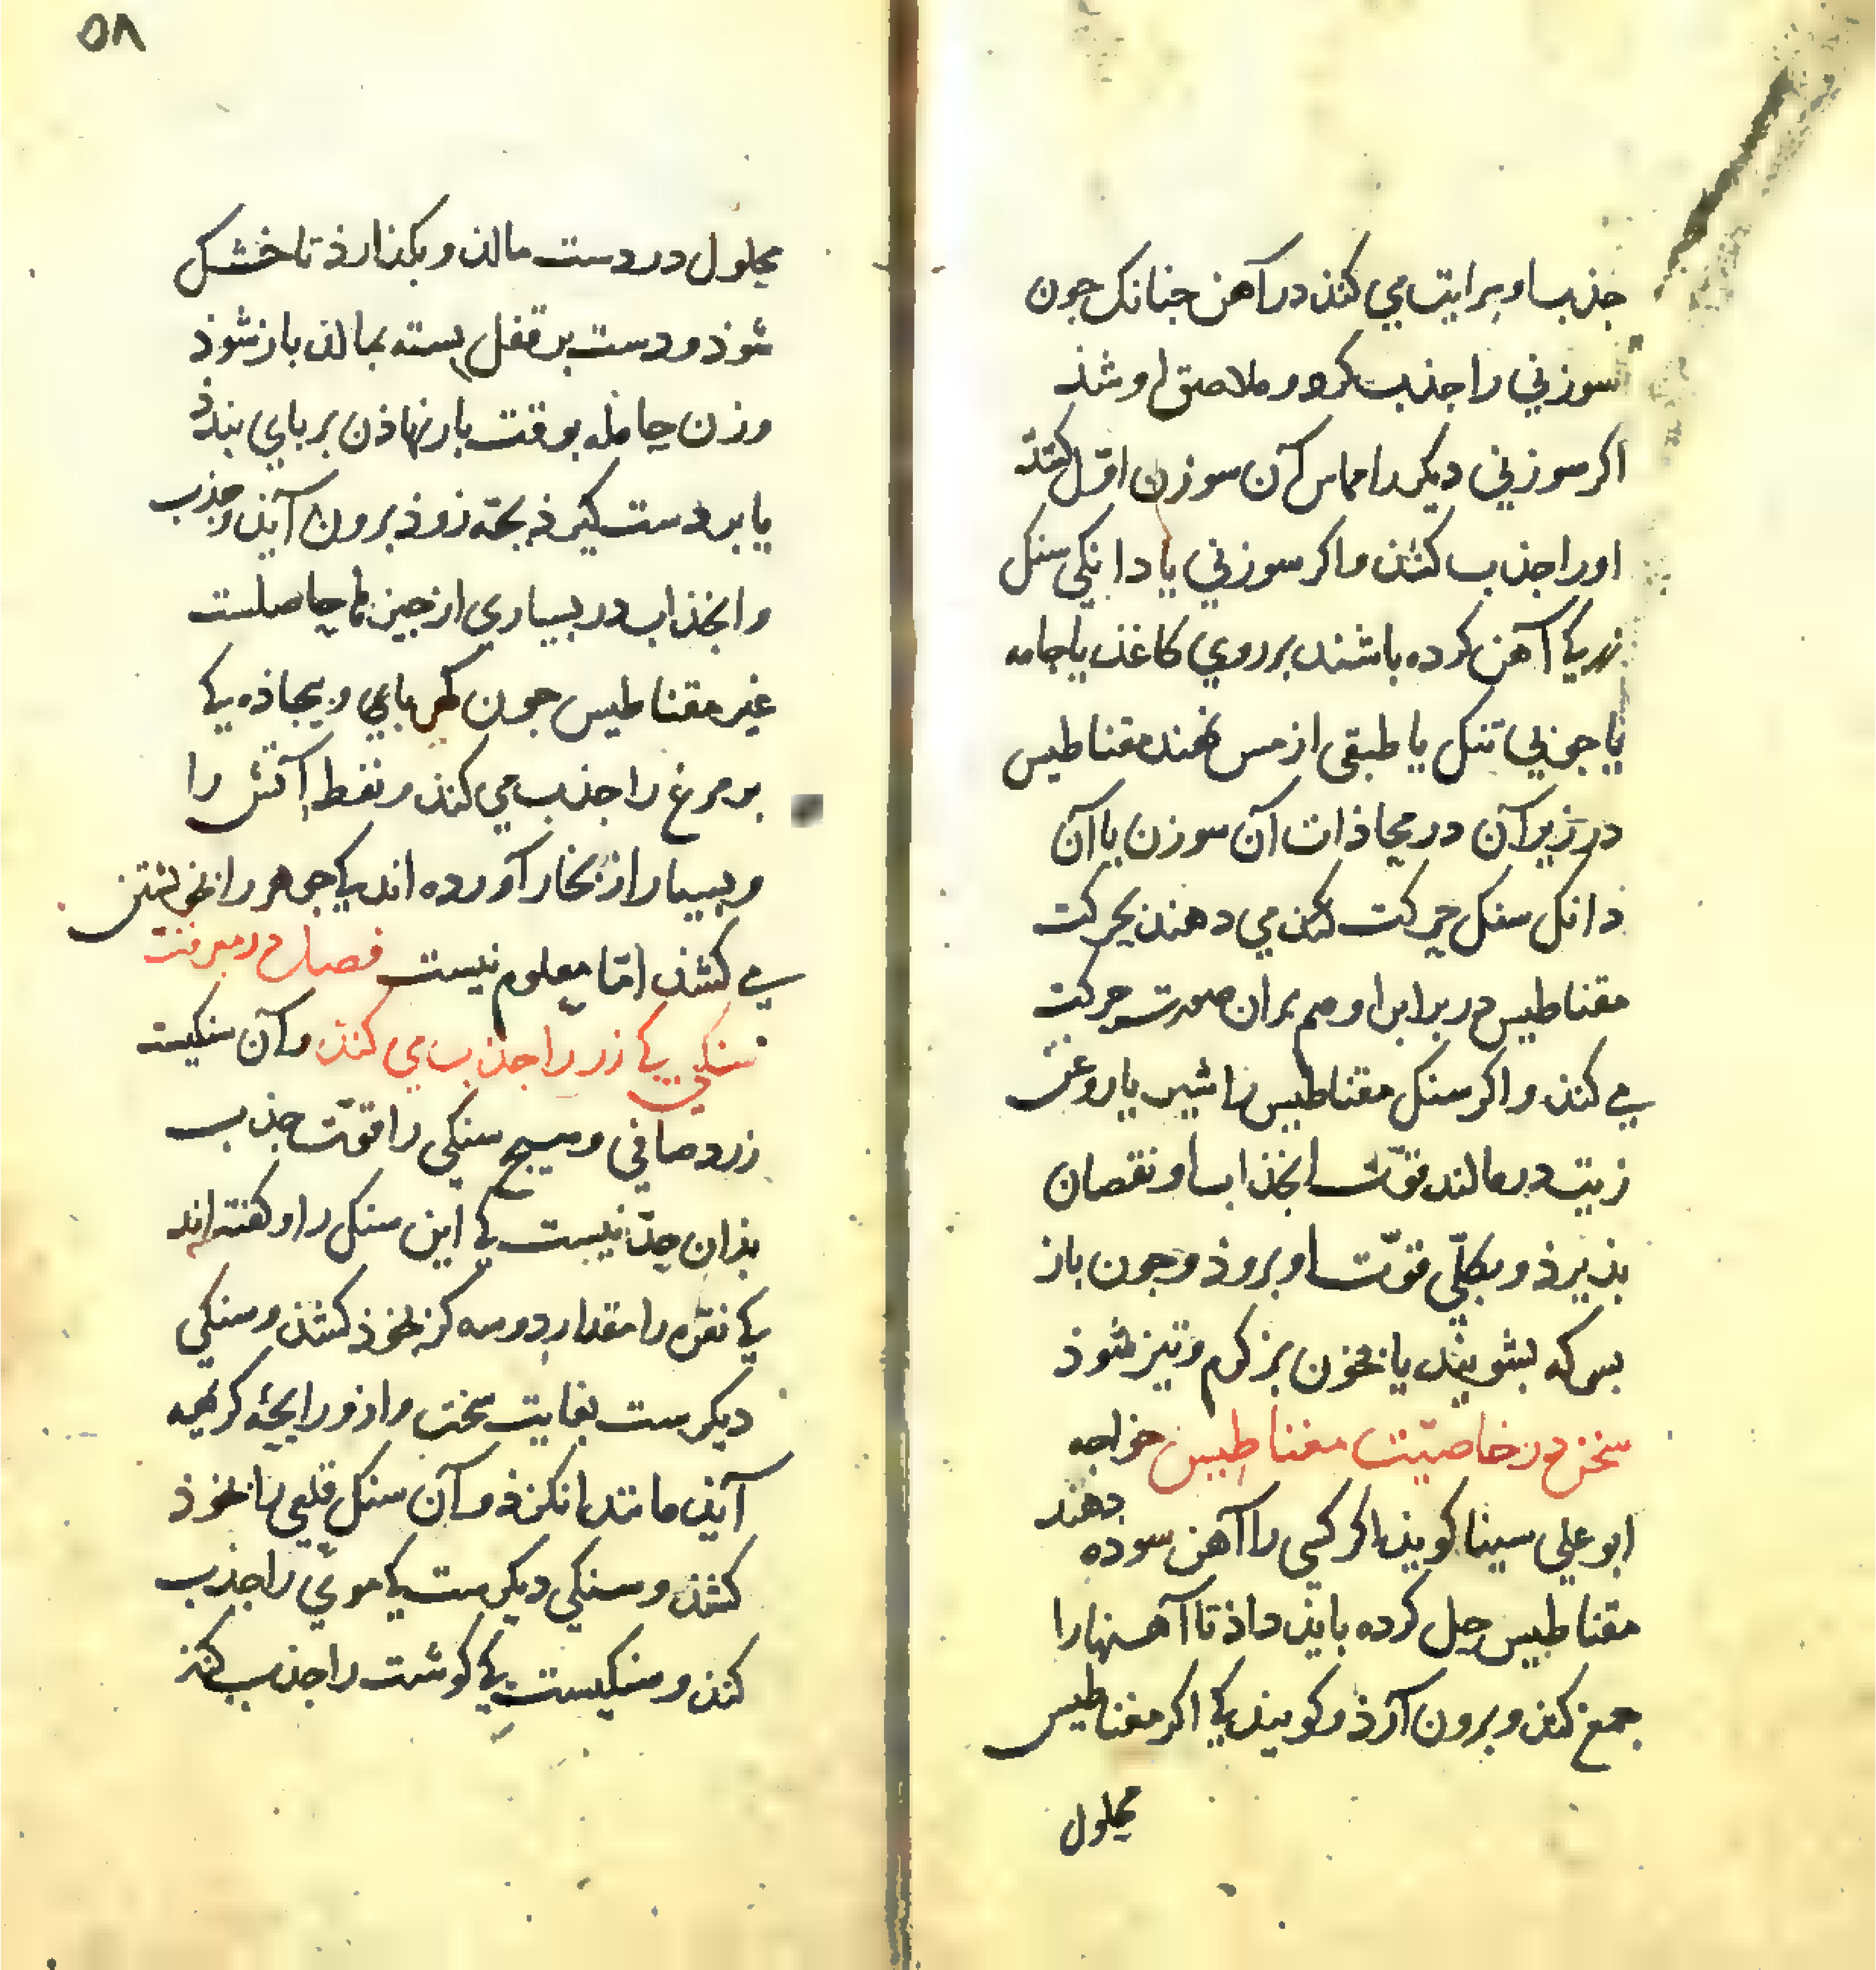 جذب او سرایت می کند در آهن جنانک جون
سوزنی را جذب کرد و ملاصق او شذ
اکر سوزنی دیکر را مماس آن سوزن اوّل کنند
او را جذب کند و اکر سوزنی یا دانکی سنک
کی آهن کرده باشند بر روی کاغذ یا جامه
یا جوبی تنک یا طبقی از مس نهند مقناطیس
در زیر آن در محاذات آن سوزن یا آن
دانک سنک حرکت می دهند بحرکت
مقناطیس در برابر او هم بران صورت حرکت
می کند و اکر سنک مقناطیس را شیر یا روغن
زیت در مالند قوّت انجذاب او نقصان
بذیرذ و بکلّی قوّت او بروذ و جون باز
بسرکه بشویند یا بخون بز کرم و تیز شوذ
سخن در خاصیّت مغناطیس خواجه
ابو علی سینا کویذ اکر کسی را آهن سوده دهند
مقناطیس حل کرده بایذ داذ تا آهنها را
جمع کند و برون آرذ و کویند کی اکر مغناطیس
محلول
۵۸
محلول در دست مالد و بکذارذ تا خشک
شوذ و دست بر قفل بسته بمالد باز شوذ
و زن حامله بوقت بار نهاذن بر بای بندذ
یا بر دست کیرذ بجّه زوذ برون آیذ و جذب
و انجذاب در بسیاری از جیزها حاصلست
غیر مقناطیس جون کهربای و بیجاذه کی
بر مرغ را جذب می کند و نفط آتش را
و بسیار از بخار آورده اند کی جوهر را بخویشتن
می کشذ امّا معلوم نیست فصل در معرفت
سنکی کی زر را جذب می کند و آن سنکیست
زرد صافی و هیج سنکی را قوّت جذب
بذان حدّ نیست کی این سنک را و کفته اند
کی نقره را مقدار دو سه کز بخوذ کشذ و سنکی
دیکرست بغایت سخت و ازو رایحهٔ کریهه
آیذ مانند انکزذ و آن سنک قلعی را بخوذ
کشذ و سنکی دیکرست کی موی را جذب
کند و سنکیست کی کوشت را جذب کند